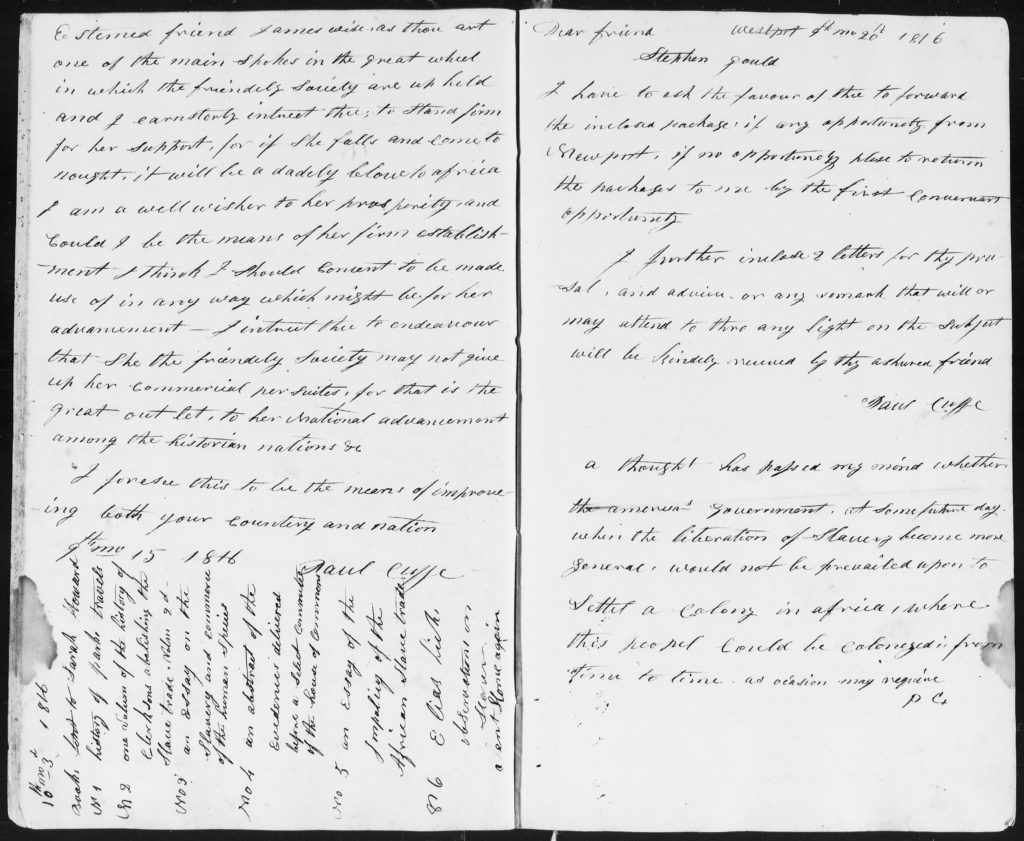 Estemed friend James wise as thou art
one of the main spokes in the great wheel
in which the friendely Society are up held
and I earnsterly intreet thee; to Stand firm
for her support, for if She falls and Come to
nought, it will be a dadely blow to africa
I am a well wisher to her prosperity and
Could I be the means of her firm establish-
ment I think I Should Consent to be made
use of in any way which might be for her
advancement – I intreet thee to endeavour
that She the friendely Society may not give
up her Commercial persuites, for that is the
great out let, to her National advancement
among the historian nations &c
I foresee this to be the means of improve-
ing both your Countery and nation
9th mo 15 1816 Paul Cuffe
10th mo 3d 1816
Books lent to Sarah Howard
No 1 history of parks travels
No 2 one volum of the history of
Clerksons abolishing the
Slave trade Volm 2d
No 3 an Essay on the
Slavery and commerce
of the human Species
No 4 an abstract of the
Evidence delivered
before a Select Committee
of the house of Commons
No 5 an Essay of the
Impolicy of the
African Slave trade
No 6 Elias Hick
observations on
Slavery
sent Home again
Dear friend Westport 9th mo 26th 1816
Stephen Gould
I have to ask the favour of thee to forward
the inclosed package; if any opportunity from
Newport, if no opportunety plese to return
the packages to me by the first Conveniant
opportunity
I further inclose 2 letters for thy pru-
sal, and advice or any remark that will or
may attend to thro any light on the Subject
will be kindely receved by thy ashured friend
Paul Cuffe
a thought has passed my mind whether
the american Government, at some future day
when the liberation of Slavery become more
General, would not be prevailed upon to
Settel a Colony in africa, where
this peopel Could be Colonezed; from
time to time as ocasion may require
P C